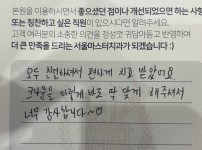 본원을 이용하시면서 좋으셨던 점이나 개선되었으면 하는 사항
또는 칭찬하고 싶은 직원이 있으시다면 알려주세요.
고객 여러분의 소중한 의견을 정성껏 귀담아듣고 반영하여
더 큰 만족을 드리는 서울마스터치과가 되겠습니다 :)
모두 친절하셔서 편하게 치료 받았어요
바로 딱 맞게 해주셔서
너무 감사합니다~♡